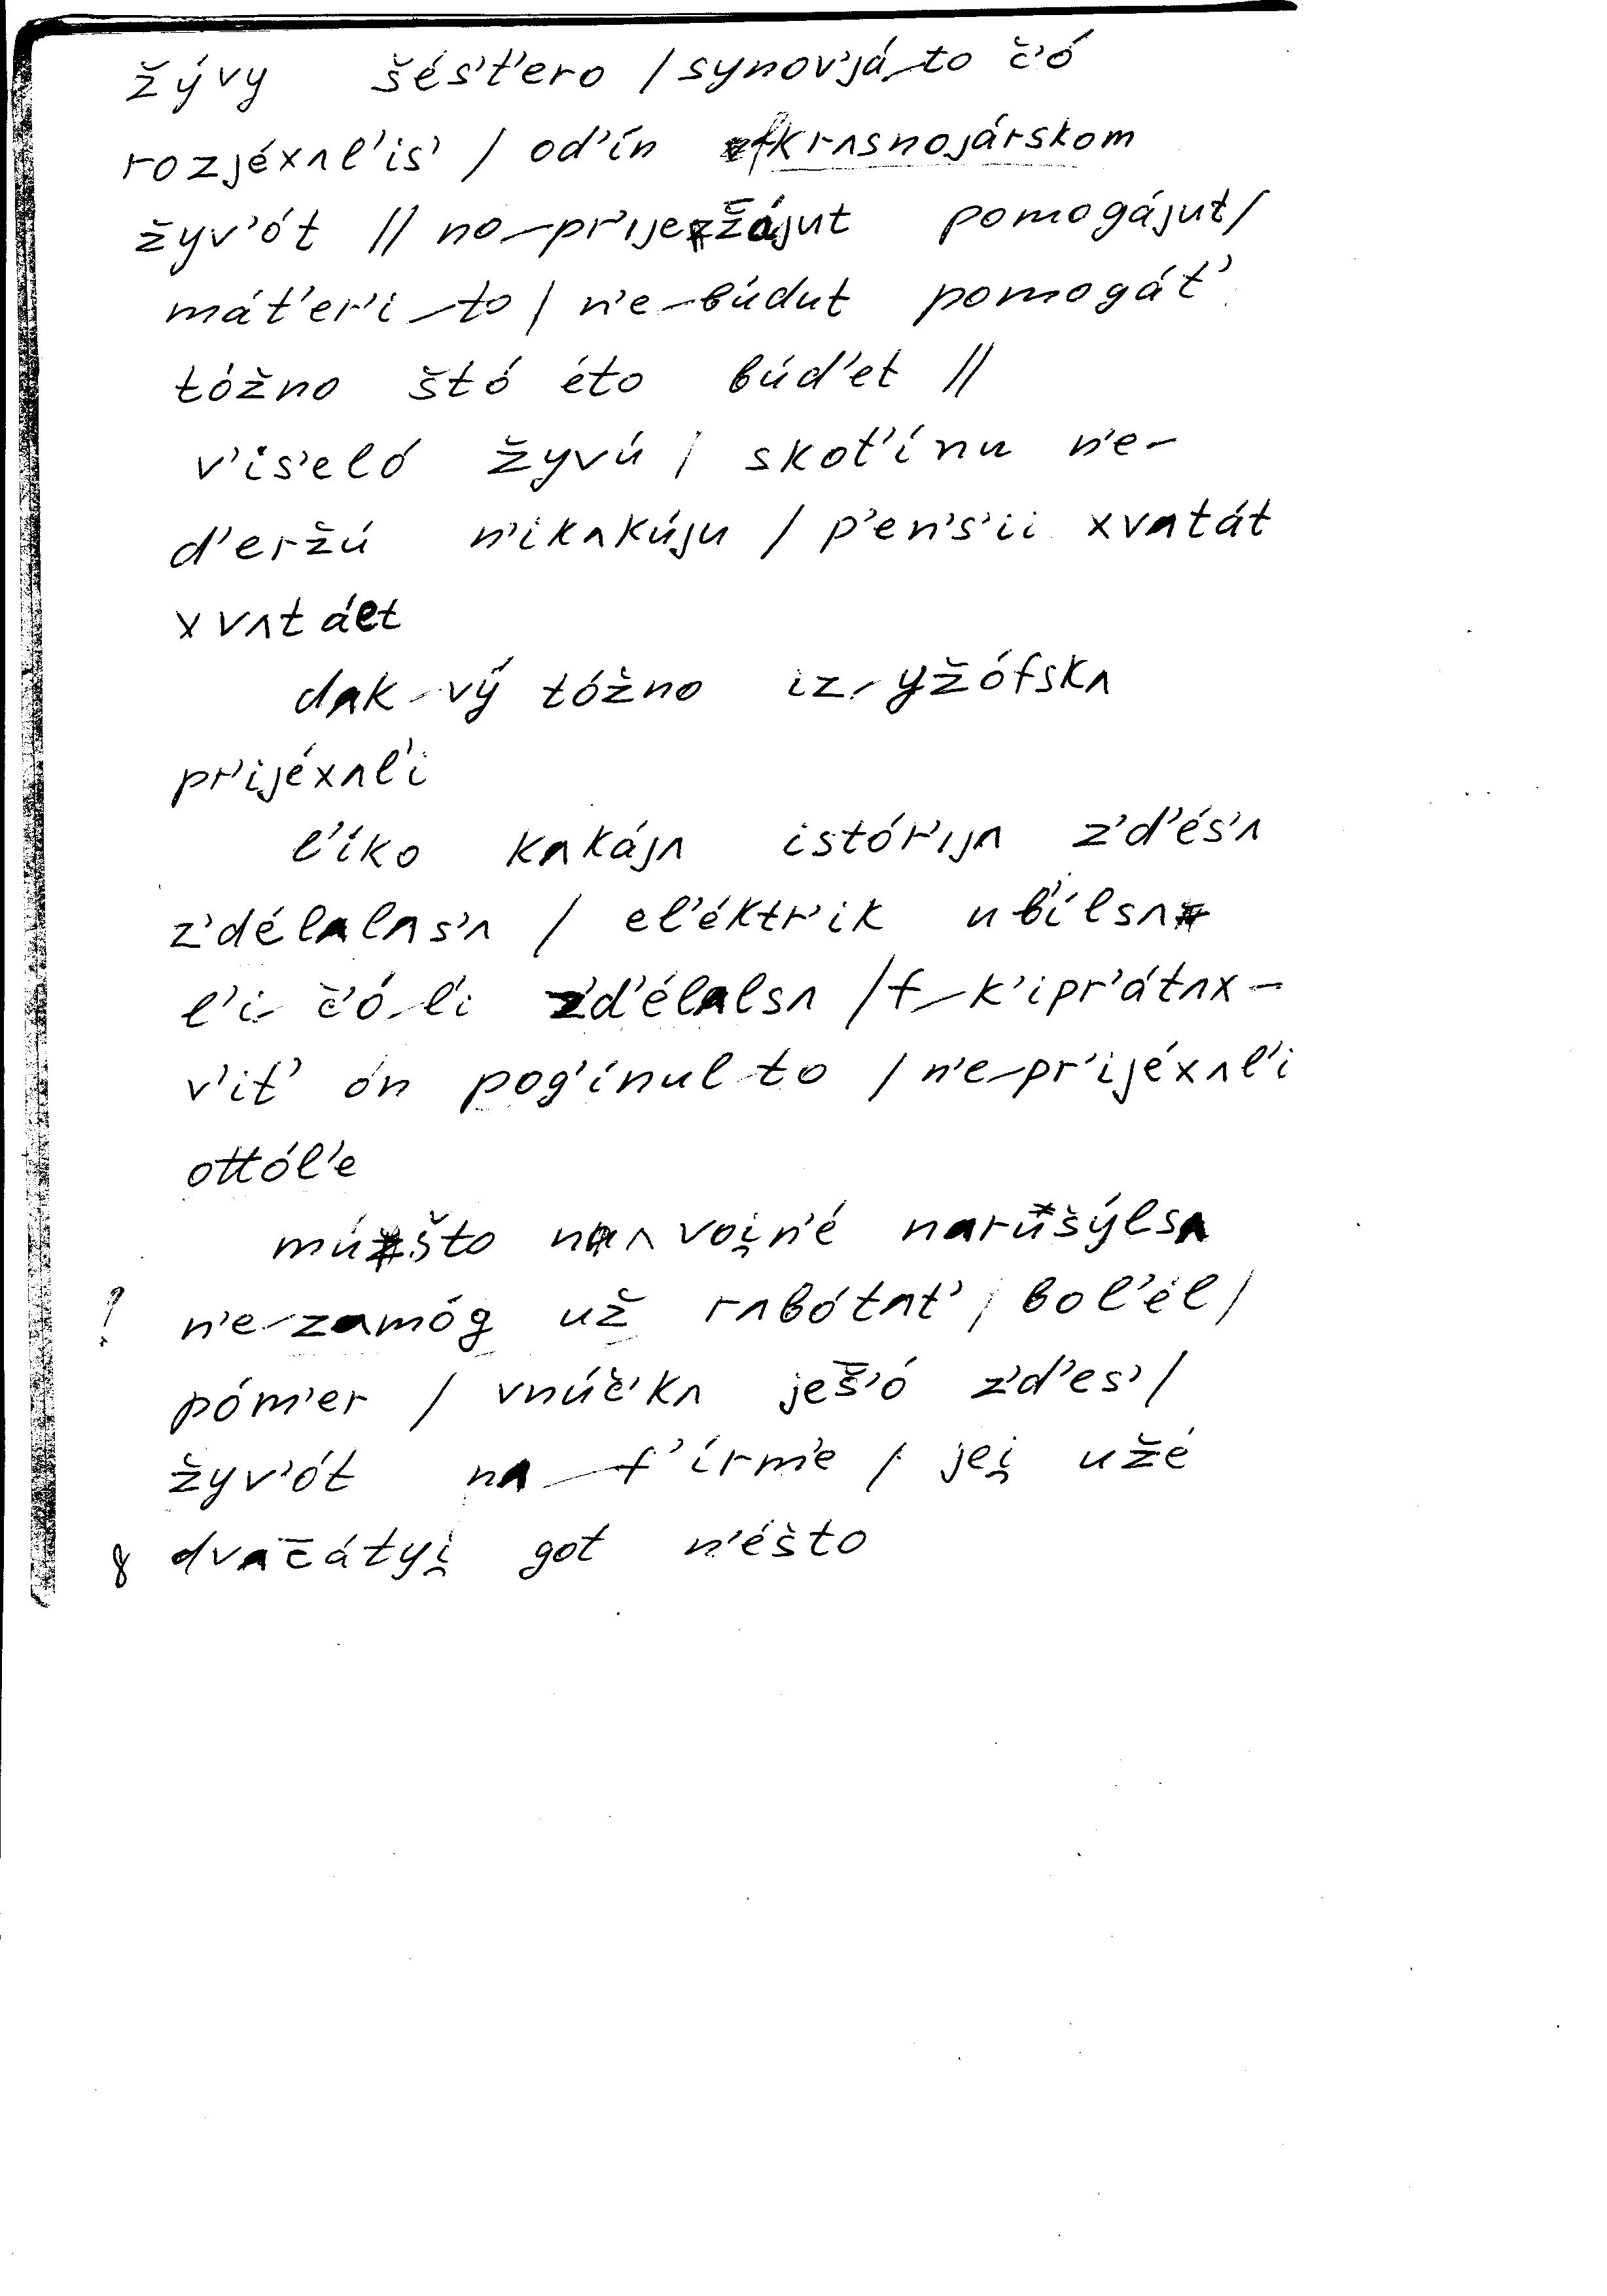 žývy šés't'ero / synov'já‿to č'ó
rozjéxʌl'is' / od'ín fkrʌsnojárskom
žyv'ót // no‿pr'ijež̄ájut pomogájut /
mát'er'i‿to / n'e‿búdut pomogát'
tóžno štó éto búd'et //
v'is'eló žyvú / skot'ínu n'e‿
d'eržú n'ikʌkúju / p'en's'ii xvʌtát
xvʌtáet
dʌk‿vý tóžno iz‿yžófskʌ
pr'ijéxʌl'i
l'íko kʌkájʌ istór'ijʌ z'd'és'ʌ
z'délʌlʌs'ʌ / el'éktr'ik ub'ílsʌ
l'i‿č'ó‿l'i z'd'élʌlsʌ / f‿k'ipr'átʌx‿
v'it' ón pog'ínul‿to / n'e‿pr'ijéxʌl'i
ottól'e
múšto nʌ voi̯n'é narušýlsʌ
! n'e‿zamóg už rʌbótʌt' / bol'él /
póm'er / vnúč'kʌ ješ̄'ó z'd'es' /
žyv'ót nʌ‿f'írm'e / jei̯ užé
8 dvʌc̄átyi̯ got n'éšto